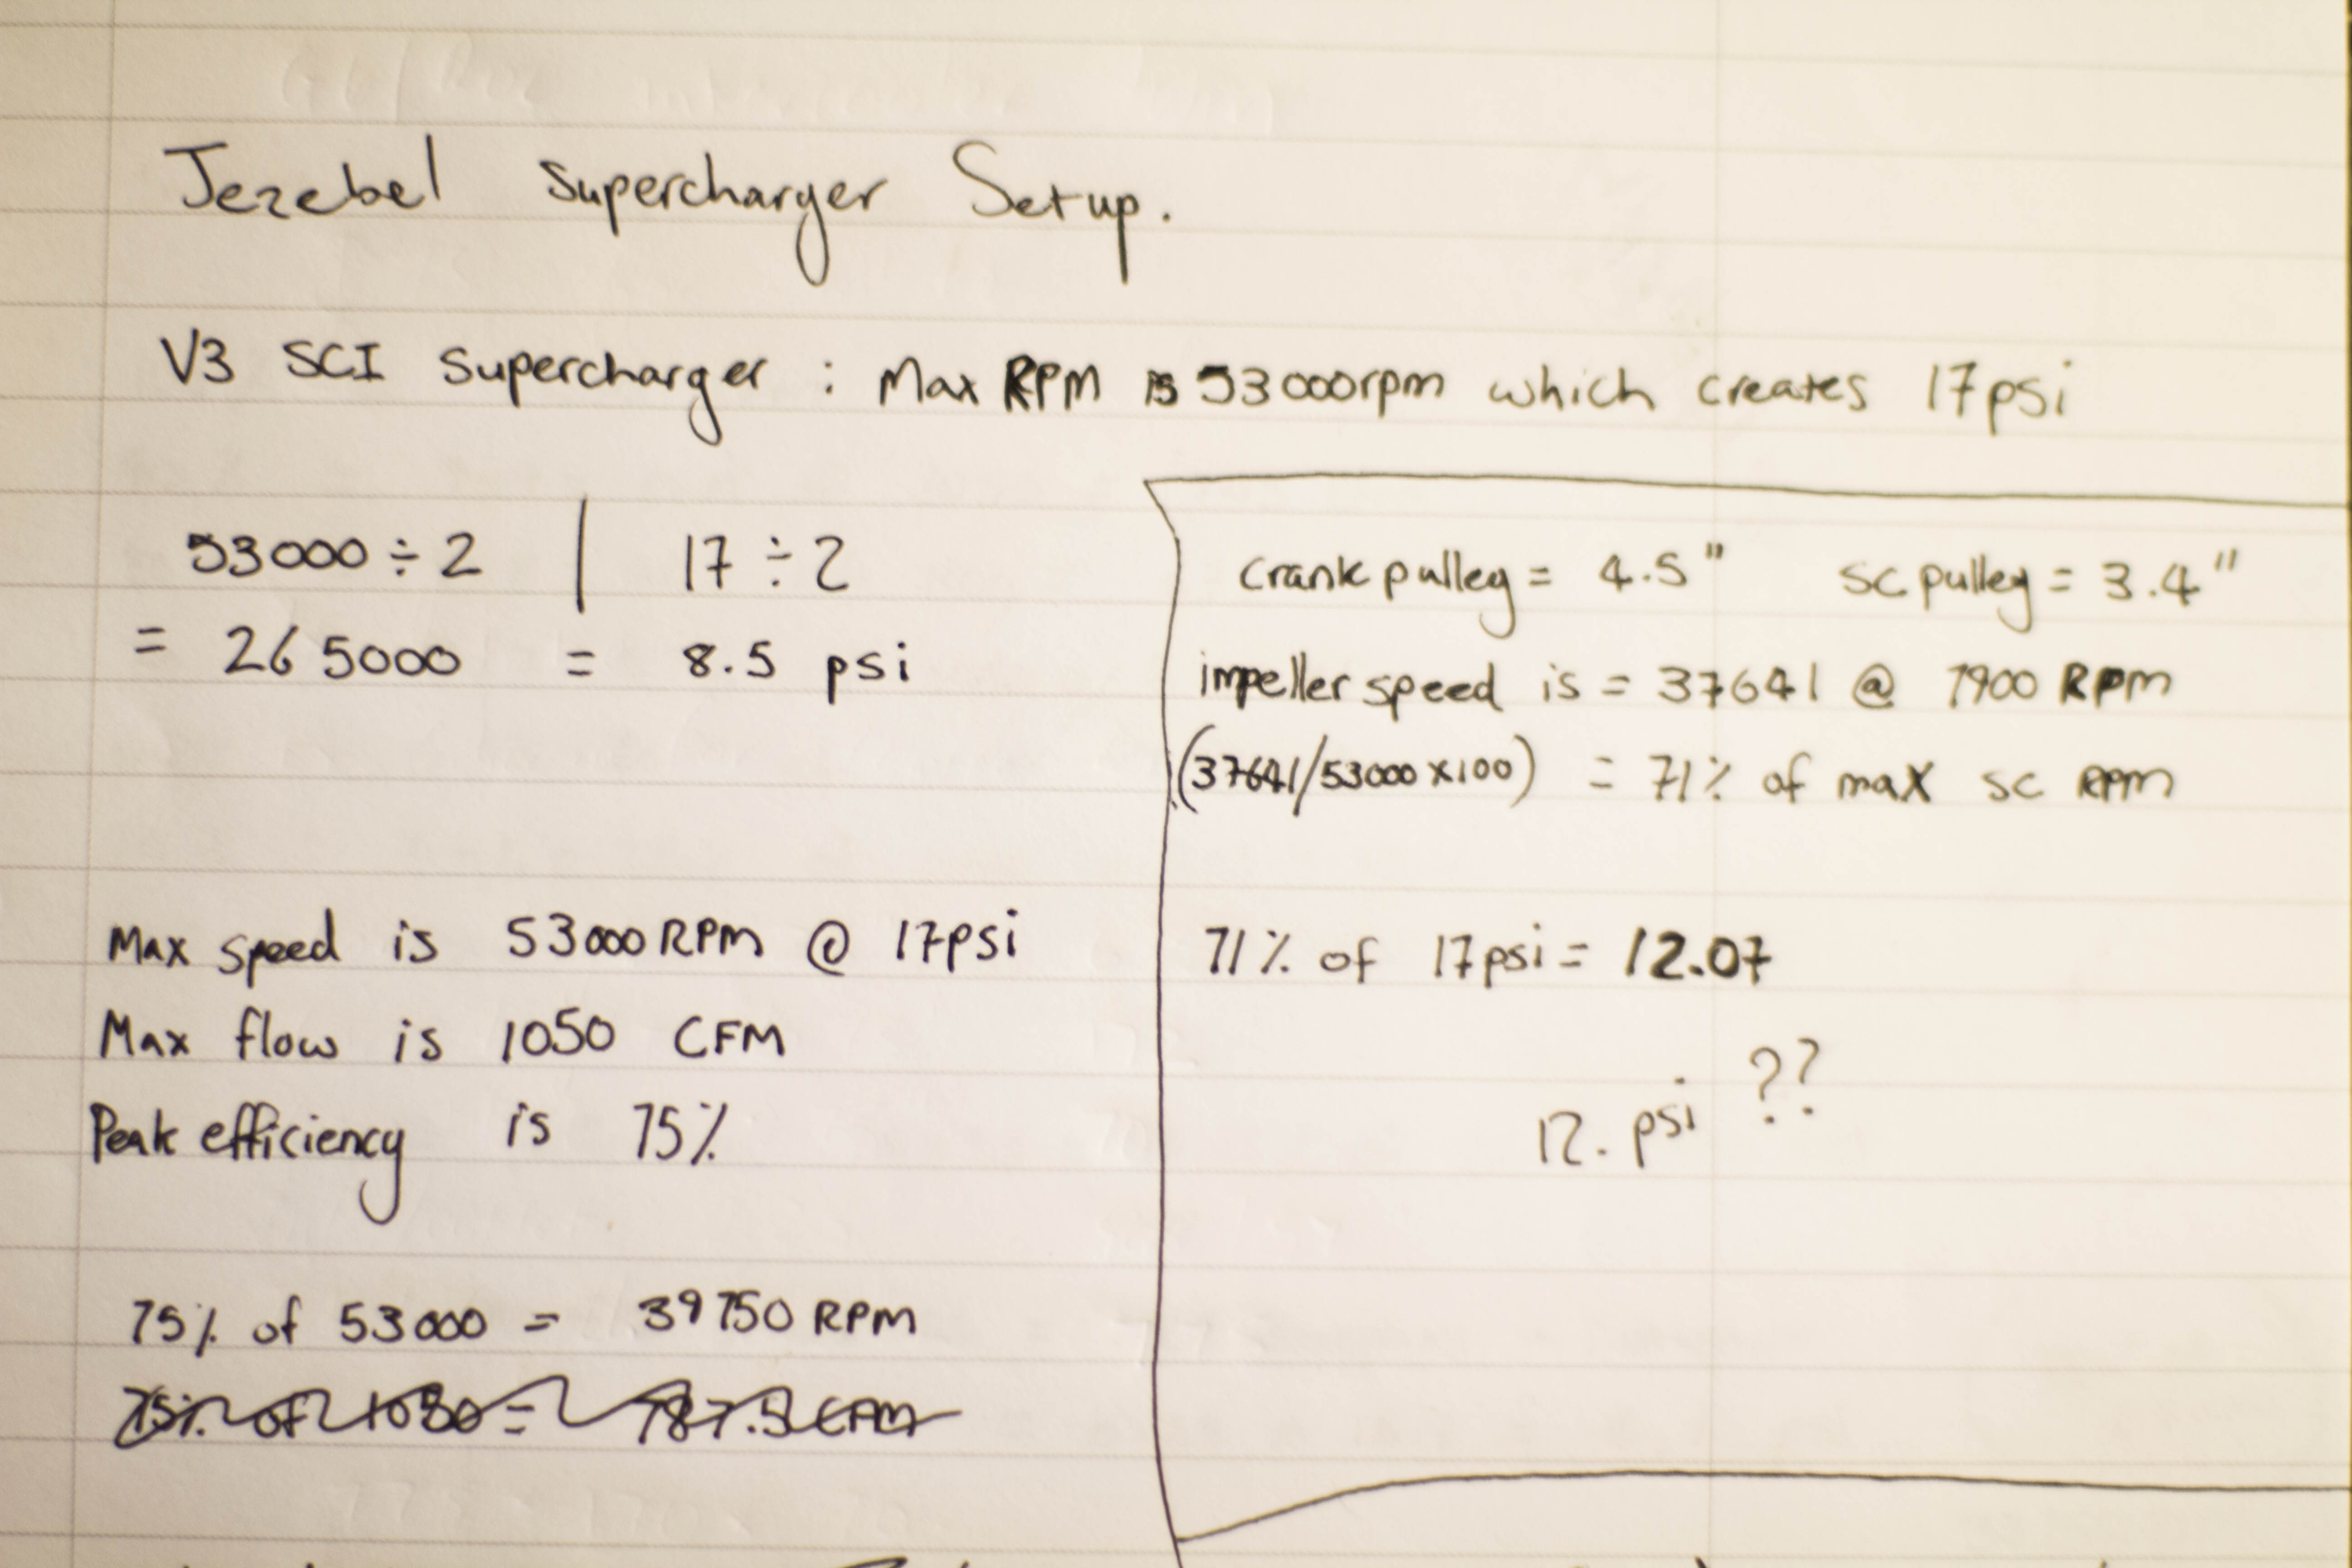 Jezebel Supercharger Setup.
V3 SCI Supercharger : Max RPM is 53000rpm which creates 17psi
53000 ÷ 2 | 17 ÷ 2
= 265000 = 8.5 psi
Max speed is 53000 RPM @ 17psi
Max flow is 1050 CFM
Peak efficiency is 75%
75% of 53000 = 39750 RPM
75% of 1050 = 787.5 CFM
crank pulley = 4.5" sc pulley = 3.4"
impeller speed is = 37641 @ 7900 RPM
(37641/53000 x100) = 71% of max sc rpm
71% of 17psi = 12.07
12. psi ??